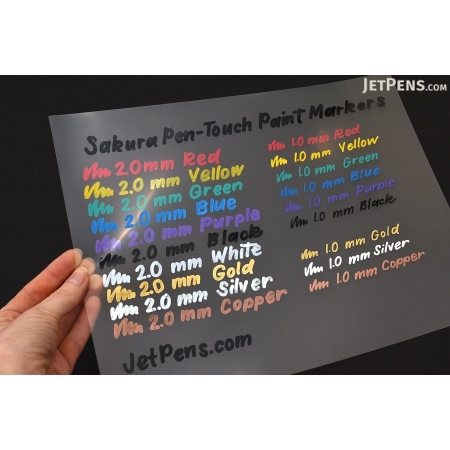 JETPENS.COM
Sakura Pen-Touch Paint Markers
2.0 mm Red
2.0 mm Yellow
2.0 mm Green
2.0 mm Blue
2.0 mm Purple
2.0 mm Black
2.0 mm White
2.0 mm Gold
2.0 mm Silver
2.0 mm Copper
1.0 mm Red
1.0 mm Yellow
1.0 mm Green
1.0 mm Blue
1.0 mm Purple
1.0 mm Black
1.0 mm Gold
1.0 mm Silver
1.0 mm Copper
JetPens.com